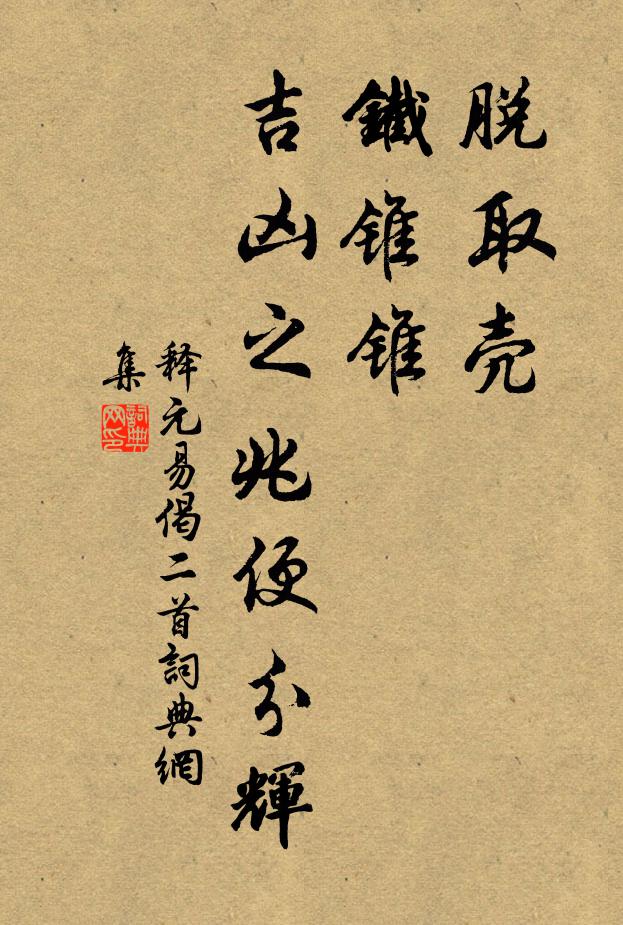 脱取壳
鐵錐錐
吉凶之兆便分輝
释元易偈二首詞典網
集
詞典
网印